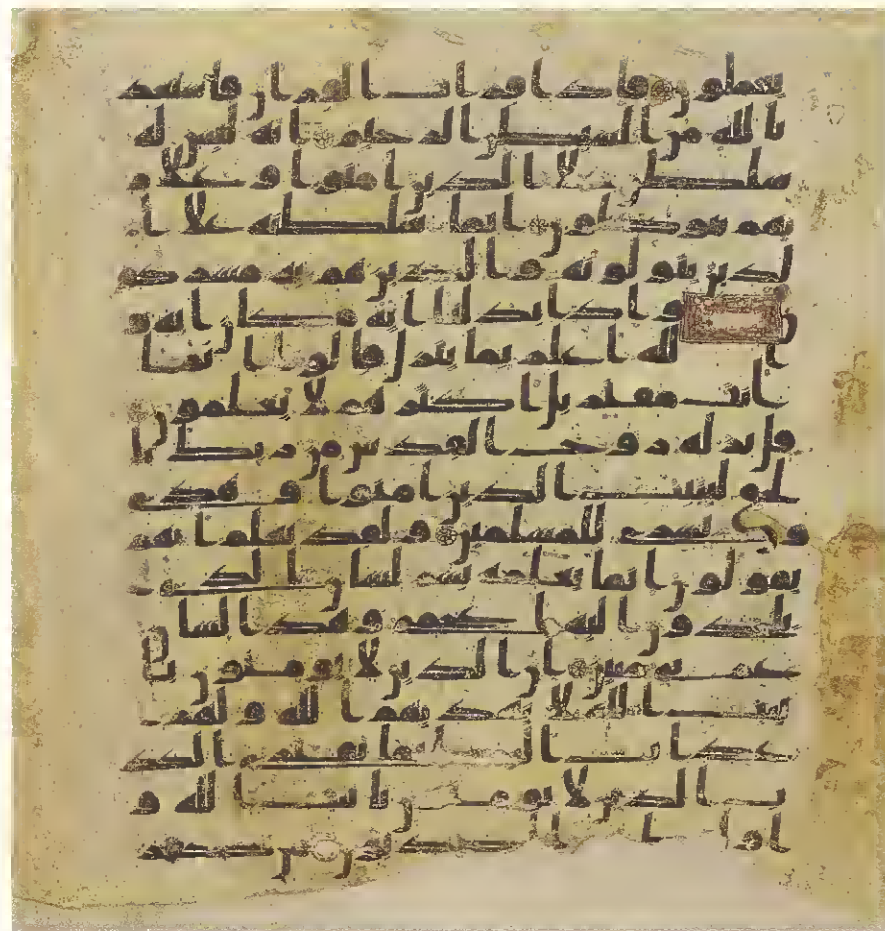 يعملون فاذا قرات القران فاستعذ
بالله من الشيطن الرجيم انه ليس له
سلطن علا الذين امنوا وعلا ر
بهم يتوكلون انما سلطنه علا ا
لذين يتولونه والذين هم به مشركو
ن واذا بدلنا ايه مكان ايه و
الله اعلم بما ينزل قالوا انما
انت مفتر بل اكثرهم لا يعلمون
قل نزله روح القدس من ربك با
لحق ليثبت الذين امنوا وهدى
وبشرى للمسلمين ولقد نعلم انهم
يقولون انما يعلمه بشر لسان الذي
يلحدون اليه اعجمي وهذا لسان
عربي مبين ان الذين لا يومنون با
يت الله لا يهديهم الله ولهم
عذاب اليم انما يفتري الكذ
ب الذين لا يومنون بايت الله و
اوليك الكذبون من كفر